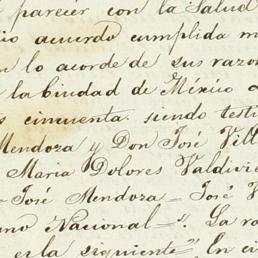 parecer con la Salud
acuerdo cumplida m
lo acorde de sus razo
la Ciudad de México
cincuenta. siendo testi
Mendoza y Don José Vill
Maria Dolores Valdivi
José Mendoza = José V
ano Nacional =". La ra
es la siguiente" En ci